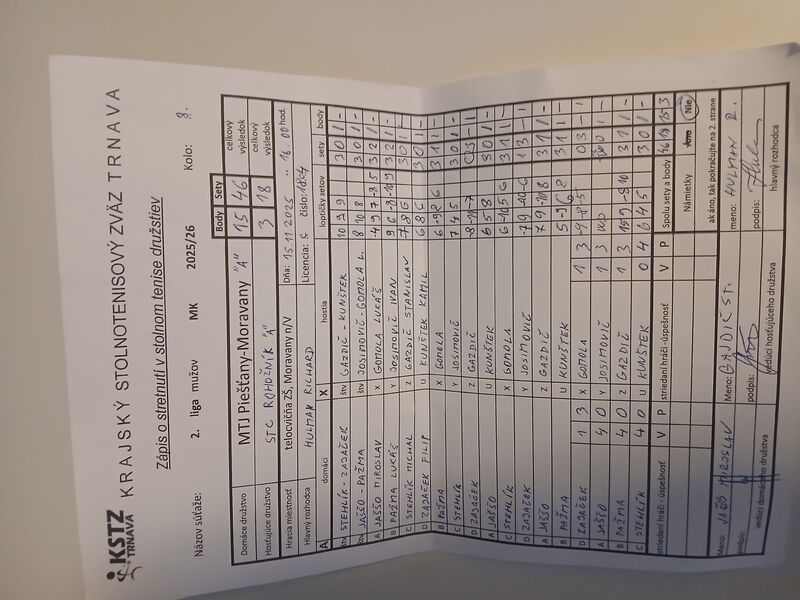 KSTZ TRNAVA KRAJSKÝ STOLNOTENISOVÝ ZVÄZ TRNAVA
Zápis o stretnutí v stolnom tenise družstiev
Názov súťaže: 2. liga mužov MK 2025/26 Kolo: 8.
Body Sety
Domáce družstvo MTJ Piešťany-Moravany "A" 15 46 celkový výsledok
Hosťujúce družstvo STC ROHOŽNÍK "A" 3 18 celkový výsledok
Hracia miestnosť telocvičňa ZŠ, Moravany n/V Dňa: 15.11.2025 16.00 hod.
Hlavný rozhodca HULMAN RICHARD Licencia: C číslo:
A domáci X hostia loptičky setov sety body
štv STEHLÍK - ZAJAČEK štv GAZDIČ - KUNŠTEK 10 7 9 3 0 1 -
štv JAŠŠO - PAŽMA štv JOSIMOVIČ - GOMOLA L. 8 10 8 3 0 1 -
A JAŠŠO MIROSLAV X GOMOLA LUKÁŠ 3 2 1 -
B PAŽMA LUKÁŠ Y JOSIMOVIČ IVAN 3 2 1 -
C STEHLÍK MICHAL Z GAZDIČ STANISLAV 7 8 6 3 0 1 -
D ZAJAČEK FILIP U KUNŠTEK KAMIL 6 8 6 3 0 1 -
B PAŽMA X GOMOLA 6 -9 8 6 3 1 1 -
C STEHLÍK Y JOSIMOVIČ 7 4 5 3 0 1 -
D ZAJAČEK Z GAZDIČ -8 -11 -7 0 3 - 1
A JAŠŠO U KUNŠTEK 6 5 8 3 0 1 -
C STEHLÍK X GOMOLA 6 -10 5 6 3 1 1 -
D ZAJAČEK Y JOSIMOVIČ -7 9 -10 -6 1 3 - 1
A JAŠŠO Z GAZDIČ 7 9 -10 8 3 1 1 -
B PAŽMA U KUNŠTEK 5 -9 6 8 3 1 1 -
D ZAJAČEK 1 3 X GOMOLA 1 3 -9 -8 -5 0 3 - 1
A JAŠŠO 4 0 Y JOSIMOVIČ 1 3 WO 3 0 1 -
B PAŽMA 4 0 Z GAZDIČ 1 3 3 1 1 -
C STEHLÍK 4 0 U KUNŠTEK 0 4 6 4 5 3 0 1 -
striedaní hráči - úspešnosť V P striedaní hráči - úspešnosť V P Spolu sety a body 46 18 15 3
Námietky Áno Nie
ak áno, tak pokračujte na 2. strane
Meno: JAŠŠO MIROSLAV Meno: GAJDIČ ST. meno: HULMAN R.
podpis: podpis: podpis:
vedúci domáceho družstva vedúci hosťujúceho družstva hlavný rozhodca